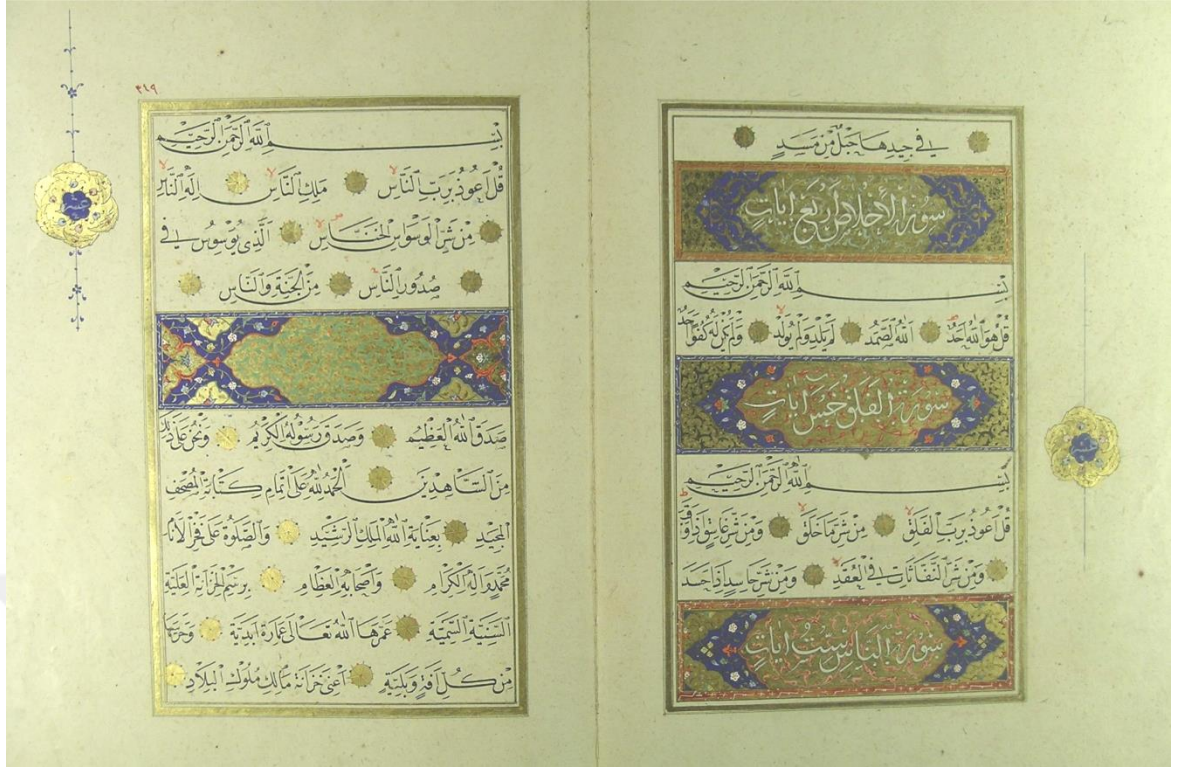 في جيدها حبل من مسد
سورة الأخلاص اربع ايات
بسم الله الرحمن الرحيم
قل هو الله احد الله الصمد لم يلد ولم يولد ولم يكن له كفوا احد
سورة الفلق خمس ايات
بسم الله الرحمن الرحيم
قل اعوذ برب الفلق من شر ما خلق ومن شر غاسق اذا وقب
ومن شر النفاثات في العقد ومن شر حاسد اذا حسد
سورة الناس ست ايات
٣٤٩
بسم الله الرحمن الرحيم
قل اعوذ برب الناس ملك الناس اله الناس
من شر الوسواس الخناس الذي يوسوس في
صدور الناس من الجنة والناس
صدق الله العظيم وصدق رسوله الكريم ونحن على ذلك
من الشاهدين الحمد لله على اتمام كتابة المصحف
المجيد بعناية الله الملك الرشيد والصلوة على فخر الانام
محمد واله الكرام واصحابه العظام برسم الخزانة العلية
السنية السمية عمرها الله تعالى عمارة ابدية وحرسها
من كل افة وبلية اعني خزانة مالك ملوك البلاد